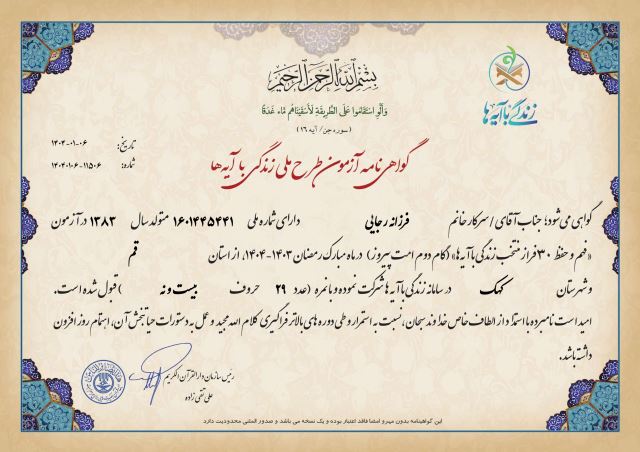 بِسْمِ اللَّهِ الرَّحْمَنِ الرَّحِيمِ
وَأَلَّوِ اسْتَقَامُوا عَلَى الطَّرِيقَةِ لَأَسْقَيْنَاهُم مَّاء غَدَقًا
(سوره جن / آیه ۱۶)
زندگی با آیه‌ها
تاریخ: ۱۴۰۴-۰۱-۰۶
شماره: ۱۴۰۴۰۱۰۶-۱۱۵۰۶
گواهی نامه آزمون طرح ملی زندگی با آیه ها
گواهی می شود؛ جناب آقای / سرکار خانم فرزانه رجایی دارای شماره ملی ۱۶۰۱۴۴۵۴۴۱ متولد سال ۱۳۸۳ در آزمون
«فهم و حفظ ۳۰ فراز منتخب زندگی با آیه ها» (گام دوم امت پیروز) در ماه مبارک رمضان ۱۴۰۳-۱۴۰۴، از استان قم
و شهرستان کهک در سامانه زندگی با آیه ها شرکت نموده و با نمره (عدد ۲۹ حروف بیست و نه) قبول شده است.
امید است نامبرده با استمداد از الطاف خاص خداوند سبحان، نسبت به استمرار و طی دوره های بالاتر فراگیری کلام الله مجید و عمل به دستورات حیاتبخش آن، اهتمام روز افزون
داشته باشد.
رئیس سازمان دارالقرآن الکریم
علی تقی زاده
این گواهینامه بدون مهر و امضا فاقد اعتبار بوده و یک نسخه می باشد و صدور المثنی محدودیت دارد